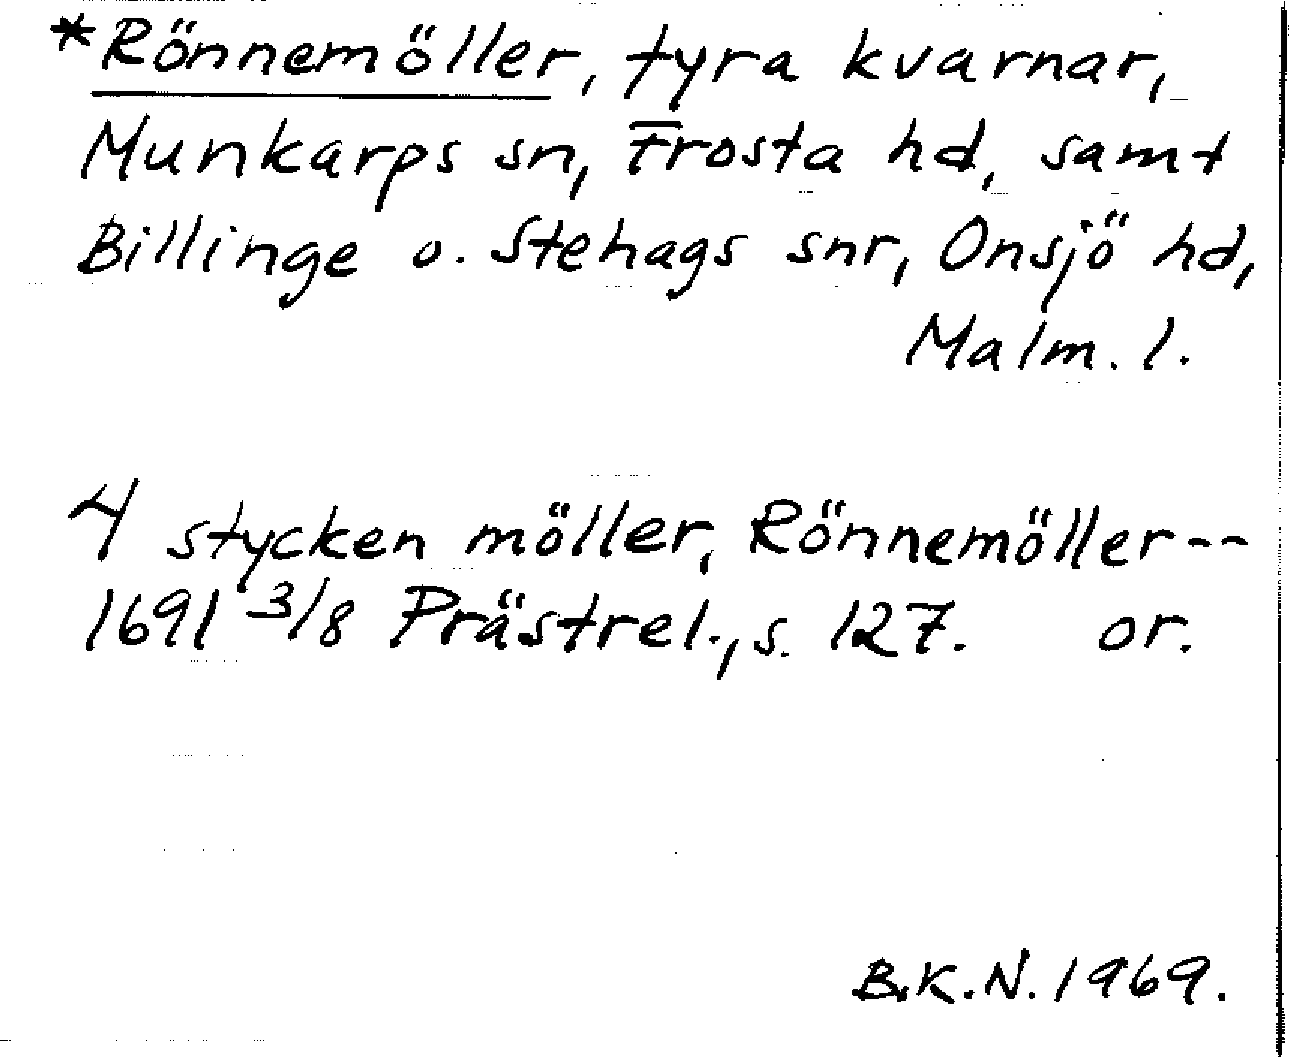 *Rönnemöller, fyra kvarnar,
Munkarps sn, Frosta hd, samt
Billinge o. Stehags snr, Onsjö hd,
Malm. l.
4 stycken möller, Rönnemöller--
1691 3/8 Prästrel., s. 127. or.
B.K.N. 1969.